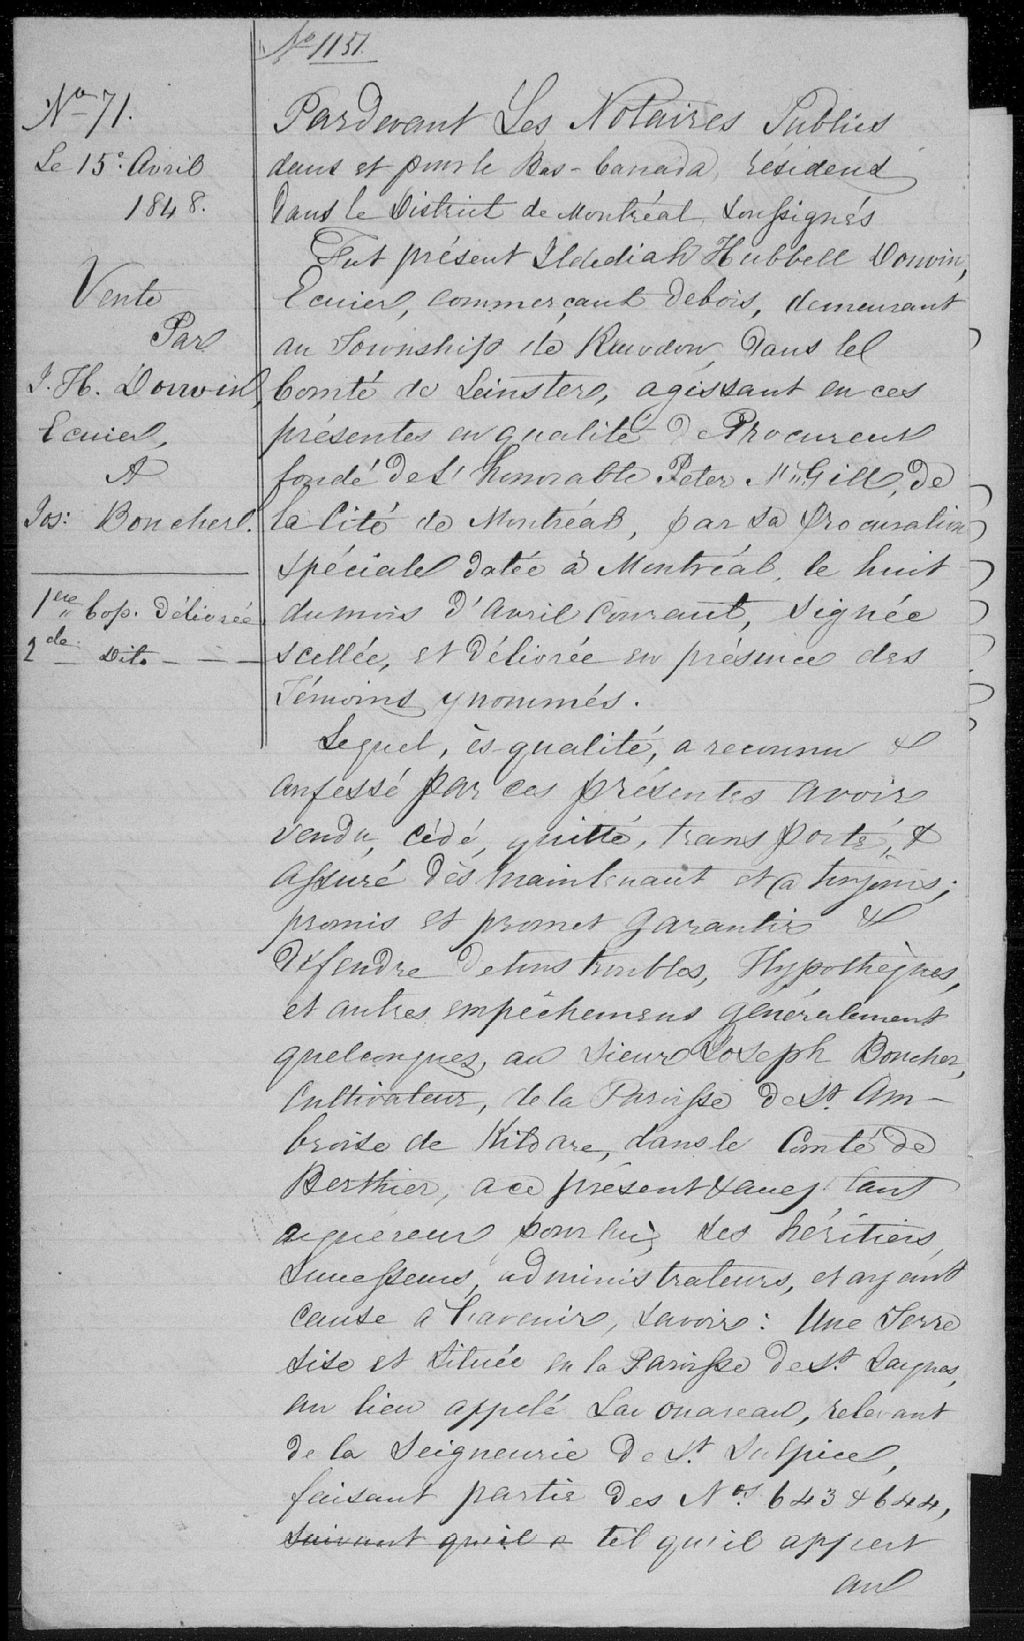 No 1151.
No 71.
Le 15e Avril
1848.
Vente
Par
J. H. Dorwin,
Ecuier,
A
Jos: Boucher.
1ere Cop. Délivrée
2de Dito - - -
Pardevant Les Notaires Publics
dans et pour le Bas-Canada, résidens
dans le District de Montréal, Soussignés
Fut présent Jedediah Hubbell Dorwin,
Ecuier, commerçant de bois, demeurant
au Township de Rawdon, dans le
Comté de Leinster, agissant en ces
présentes en qualité de Procureur
fondé de l'honorable Peter McGill, de
la Cité de Montréal, par sa procuration
spéciale datée à Montréal, le huit
du mois d'Avril courant, signée
scellée, et délivrée en présence des
Témoins y nommés.
Lequel, ès-qualité, a reconnu &
confessé par ces présentes avoir
vendu, cédé, quitté, transporté, &
assuré dès maintenant et a toujours;
promis et promet garantir &
défendre de tous troubles, Hypothèques,
et autres empêchemens généralement
quelconques, au Sieur Joseph Boucher,
Cultivateur, de la Paroisse de St. Am-
broise de Kildare, dans le Comté de
Berthier, a ce présent & accept tant
acquereur pour lui, ses héritiers,
Successeurs, administrateurs, et ayant
cause a l'avenir, savoir: Une Terre
sise et située en la Paroisse de St. Jacques,
au lieu appelé Lac Ouareau, relevant
de la Seigneurie de St. Sulpice,
faisant partie des Nos. 643 & 644,
suivant qu'il a tel qu'il appert
au